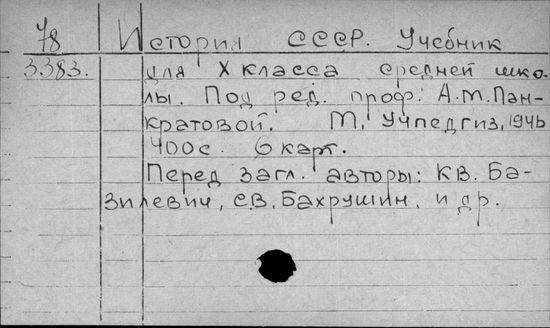 78 История СССР. Учебник
3383. для X класса средней шко-
лы. Под ред. проф. А.М.Пан-
кратовой. М, Учпедгиз, 1946
400с. 6 карт.
Перед загл. авторы: К.В. Ба-
зилевич, С.В. Бахрушин, и др.